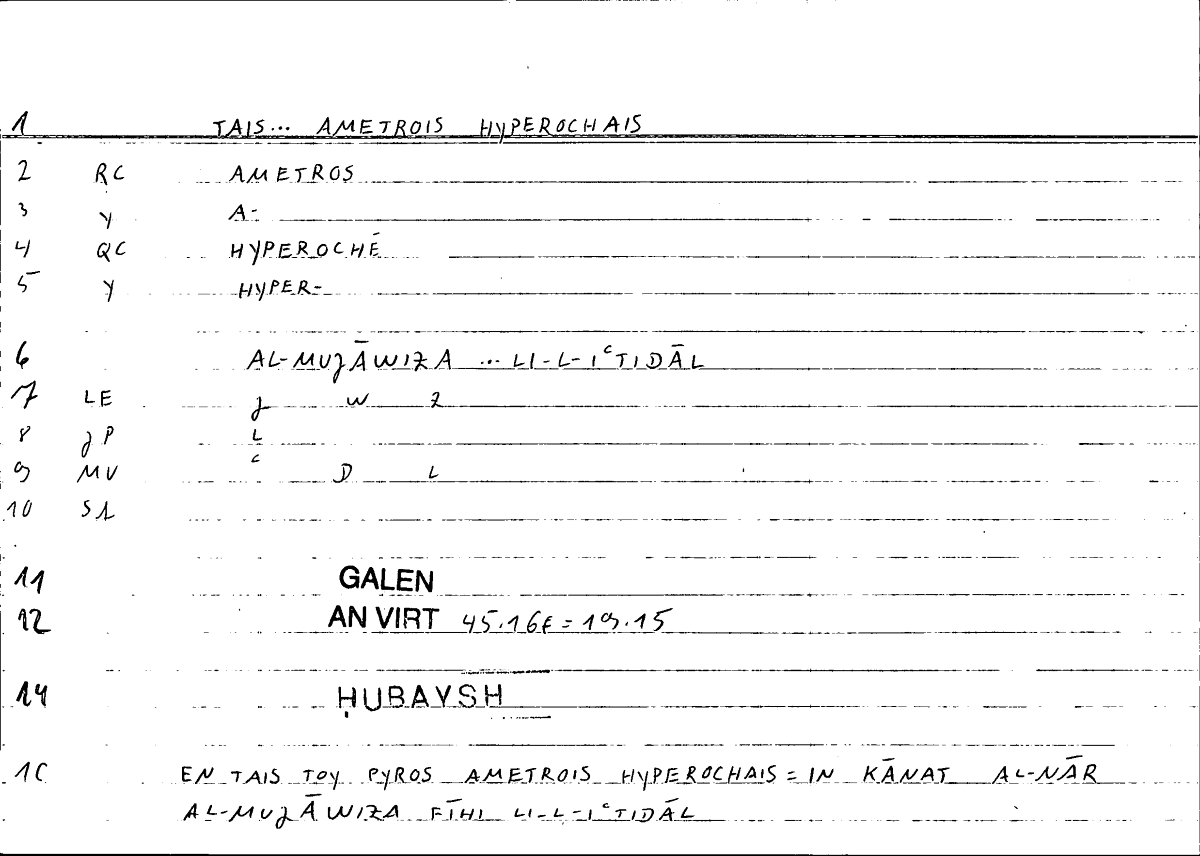 1 TAIS... AMETROIS HYPEROCHAIS
2 RC AMETROS
3 Y A-
4 QC HYPEROCHĒ
5 Y HYPER-
6 AL-MUJĀWIZA ... LI-L-IʿTIDĀL
7 LE J W Z
8 JP L
9 MV ʿ D L
10 SL
11 GALEN
12 AN VIRT 45.16f = 19.15
14 ḤUBAYSH
1C EN TAIS TOY PYROS AMETROIS HYPEROCHAIS = IN KĀNAT AL-NĀR
AL-MUJĀWIZA FĪHI LI-L-IʿTIDĀL